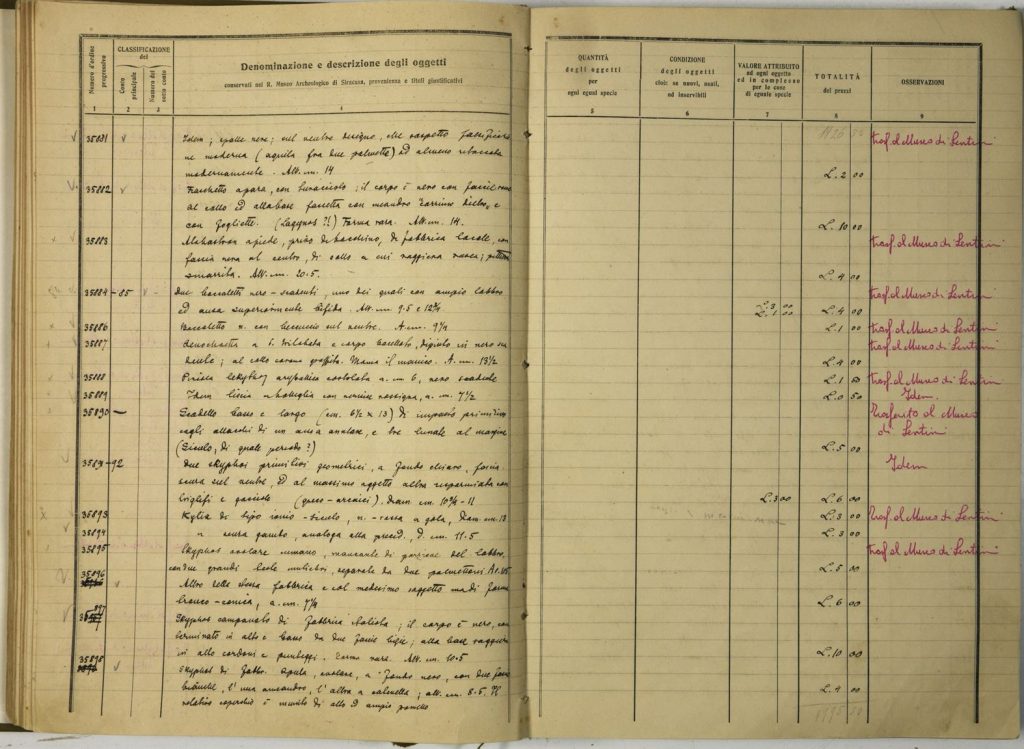 Numero d'ordine progressivo
CLASSIFICAZIONE
del
Conto principale
Numero del sotto conto
Denominazione e descrizione degli oggetti
conservati nel R. Museo Archeologico di Siracusa, provenienza e titoli giustificativi
QUANTITÀ
degli oggetti
per ogni egual specie
CONDIZIONE
degli oggetti
cioè: se nuovi, usati,
od inservibili
VALORE ATTRIBUITO
ad ogni oggetto
ed in complesso
per le cose
di eguale specie
TOTALITÀ
dei prezzi
OSSERVAZIONI
1 2 3 4 5 6 7 8 9
35881 Idem; spalle nere; nel ventre disegno, che sospetto
ne moderna (aquila fra due palmette) od almeno ritoccata
modernamente. Alt. m. 14 L. 2 00 trasf. al Museo di Lentini
35882 Fiaschetto apara, con il corpo è nero con
al collo ed alla base fascetta con meandro e
con fogliette. (Lagynos?!) Forma rara. Alt. m. 14. L. 10 00
35883 Alabastron apiede, privo di di fabbrica locale, con
fascia nera al centro, di collo a cui raggiera
smarrita. Alt. m. 20.5. L. 4 00 trasf. al Museo di Lentini
35884-85 Due boccaletti nero-scadenti, uno dei quali con ampio labbro
ed ansa superiormente bifida. Alt. m. 9.5 e 12 3/4 L. 3 00 L. 1 00 L. 4 00 trasf. al Museo di Lentini
35886 Boccaletto n. con beccuccio sul ventre. A. m. 9 1/4 L. 1 00 trasf. al Museo di Lentini
35887 Oenochoetta a b. trilobata e corpo baccellato, dipinto in nero
al collo corona graffita. Manca il manico. A. m. 13 1/2 L. 4 00 trasf. al Museo di Lentini
35888 Piccola lekythos aryballica costolata a. m. 6, nero scadente L. 1 50 trasf. al Museo di Lentini
35889 Idem liscia a bottiglia con vernice rossigna, a. m. 7 1/2 L. 0 50 Idem.
35890 Scodella bassa e larga (cm. 6 1/2 x 13) di impasto primitivo
agli attacchi di un ansa anulare, e tre lunate al margine
(Siculo, di quale periodo?) L. 5 00 Trasferito al Museo
di Lentini
35891-92 Due skyphoi primitivi geometrici, a fondo chiaro, fascia
scura sul ventre, ed al massimo aggetto altra risparmiata con
triglifi e (greco-arcaici). Diam. m. 10 3/4 - 11 L. 3 00 L. 6 00 Idem
35893 Kylix di tipo ionio-siculo, n.-rossa a gola, Diam. m. 13 L. 3 00 Trasf. al Museo di Lentini
35894 " senza gambo, analoga alla preced., d. cm. 11.5 L. 3 00
35895 Skyphos mancante di porzione del labbro,
con due grandi teste muliebri, separate da due palmettoni L. 5 00 trasf. al Museo di Lentini
35896 Altro della stessa fabbrica e col medesimo soggetto ma di forma
tronco-conica, a. m. 7 1/4 L. 6 00
35897 Skyphos campanato di fabbrica il corpo è nero, con
terminato in alto e basso da due fascie bigie; alla base raggiera
in alto cordoni e punteggi. Forma rara. Alt. m. 10.5 L. 10 00
35898 Skyphos di fabbr. apula, a fondo nero, con due fascie
bianche, l'una meandro, l'altra a alt. m. 8.5. Il
relativo coperchio è munito di alto ed ampio pomello L. 4 00